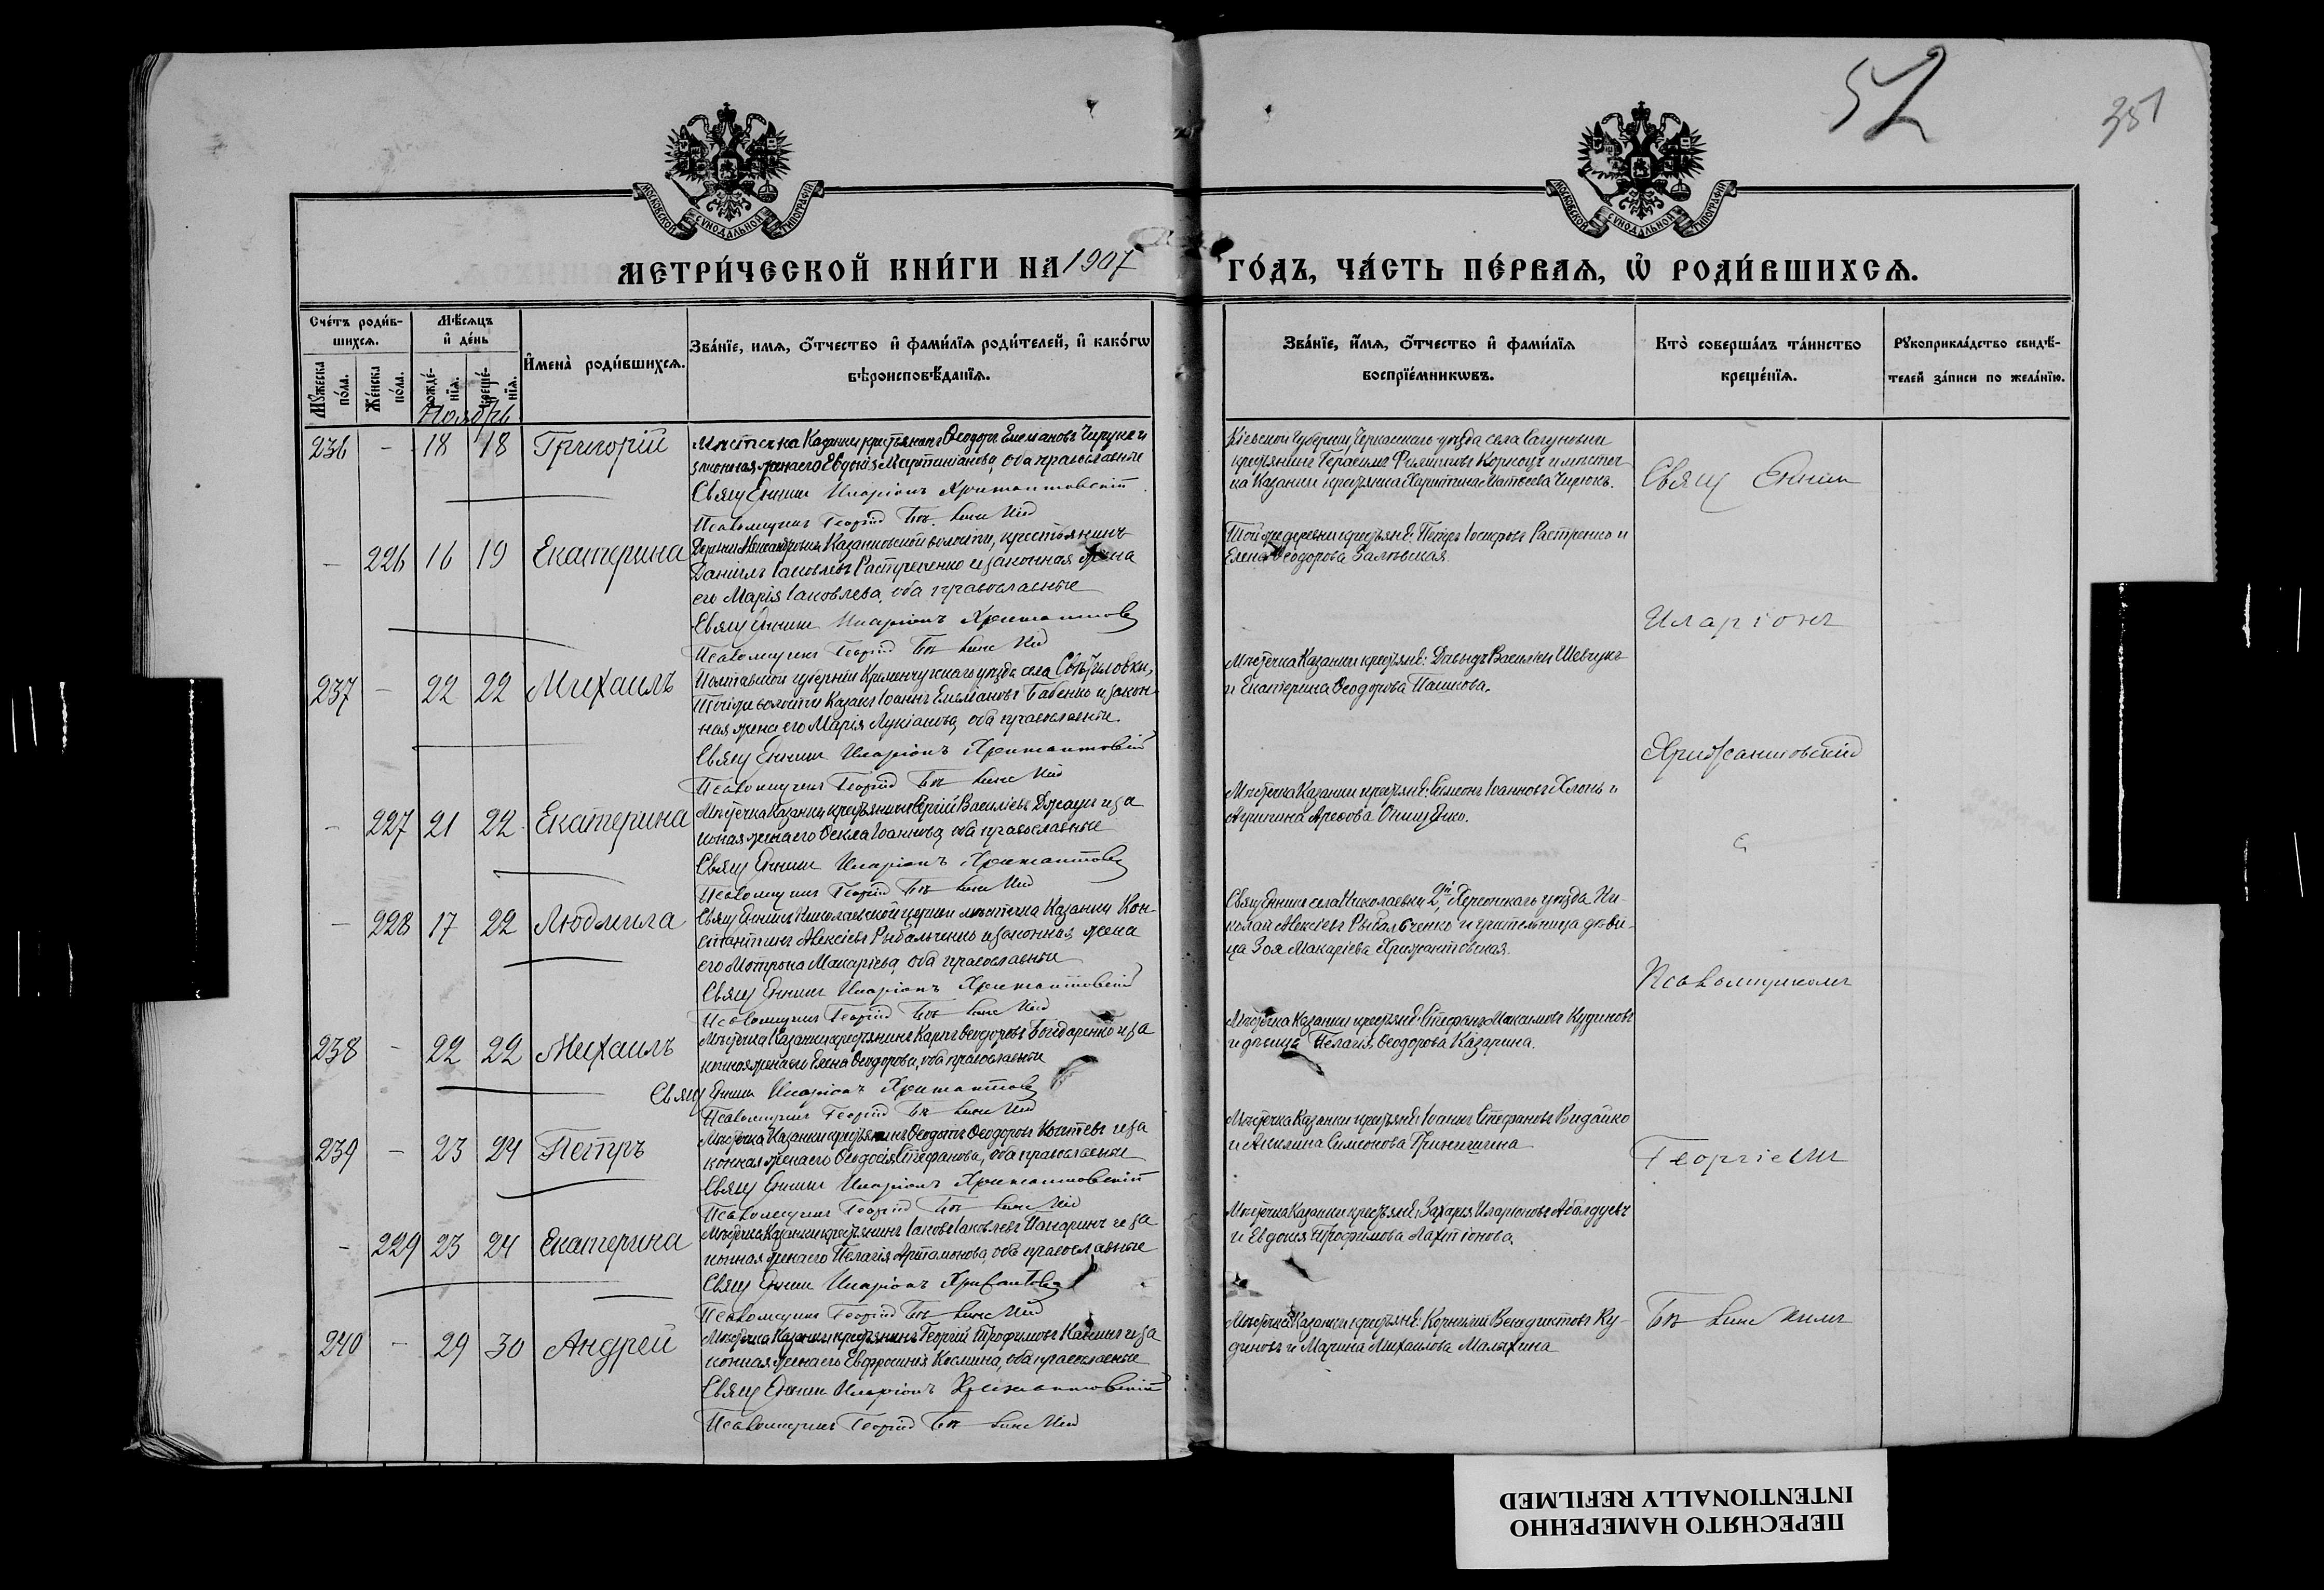 52
351
МОСКОВСКОЙ СѴНОДАЛЬНОЙ ТИПОГРАФІИ
МОСКОВСКОЙ СѴНОДАЛЬНОЙ ТИПОГРАФІИ
МЕТРИ́ЧЕСКОЙ КНИ́ГИ НА 1907 ГО́ДЪ, ЧА́СТЬ ПЕ́РВАѦ, Ѡ҆ РОДИ́ВШИХСѦ.
Сче́тъ роди́в-
шихсѧ.
Мꙋ́жеска по́ла.
Же́нска по́ла.
Мѣ́сѧцъ
и҆ де́нь
рожде́-
нїѧ.
креще́-
нїѧ.
И҆мена̀ роди́вшихсѧ.
Зва́нїе, имѧ, ѻ҆́тчество и҆ фами́лїѧ роди́телей, и҆ како́гѡ
вѣроисповѣ́данїѧ.
Зва́нїе, и҆́мѧ, ѻ҆́тчество и҆ фами́лїѧ
воспрїе́мникѡвъ.
Кто̀ соверша́лъ та́инство
креще́нїѧ.
Рꙋкоприкла́дство свидѣ́-
телей за́писи по жела́нїю.
Ноябрь
236 - 18 18 Григорій
Мѣстечка Казанки крестьянинъ Ѳеодоръ Емеліановъ
законная жена его Евдокія Мартиніанова, оба православные
Священникъ Иларіонъ Хрисанѳовскій
Псаломщикъ Георгій
Кіевской губерніи, Черкасскаго уѣзда села Сагуновки
крестьянинъ Герасимъ Филиповъ и мѣстеч-
ка Казанки крестьянка Харитина Матвеева
Священникъ
- 226 16 19 Екатерина
Деревни Казанковской волости, крестьянинъ
Даніилъ Іаковлевъ и законная жена
его Марія Іаковлева, оба православные
Священникъ Иларіонъ
Псаломщикъ Георгій
Той же деревни крестьяне: Петръ Іосифовъ и
Елена Ѳеодорова
Иларіонъ
237 - 22 22 Михаилъ
Полтавской губерніи Кременчугскаго уѣзда села
волости казакъ Іоаннъ Емеліановъ Бабенко и закон-
ная жена его Марія Лукіанова, оба православные.
Священникъ Иларіонъ Хрисанѳовскій
Псаломщикъ Георгій
Мѣстечка Казанки крестьяне: Давидъ Васильевъ Шевчукъ
и Екатерина Ѳеодорова Пашкова.
Хрисанѳовскій
- 227 21 22 Екатерина
Мѣстечка Казанки крестьянинъ Сергій Василіевъ и за-
конная жена его Ѳекла Іоаннова, оба православные
Священникъ Иларіонъ
Псаломщикъ Георгій
Мѣстечка Казанки крестьяне: Симеонъ Іоанновъ и
Онищенко.
с
- 228 17 22 Людмила
Священникъ Николаевской церкви мѣстечка Казанки Кон-
стантинъ Алексіевъ Рыбальченко и законная жена
его Мотрона Макаріева, оба православные
Священникъ Иларіонъ Хрисанѳовскій
Псаломщикъ Георгій
Священникъ села Николаевки 2й, Херсонскаго уѣзда Ни-
колай Алексіевъ Рыбальченко и учительница дѣви-
ца Зоя Макаріева Хрисанѳовская.
Псаломщикомъ
238 - 22 22 Михаилъ
Мѣстечка Казанки крестьянинъ Карпъ Ѳеодоровъ и за-
конная жена его Елена Ѳеодорова, оба православные
Священникъ Иларіонъ
Псаломщикъ Георгій
Мѣстечка Казанки крестьяне: Стефанъ Максимовъ Кудиновъ
и дѣвица Пелагія Ѳеодорова Казарина.
239 - 23 24 Петръ
Мѣстечка Казанки крестьянинъ Ѳеодотъ Ѳеодоровъ и за-
конная жена его Ѳеодосія Стефанова, оба православные
Священникъ Иларіонъ Хрисанѳовскій
Псаломщикъ Георгій
Мѣстечка Казанки крестьяне: Іоаннъ Стефановъ Видайко
и Акилина Симеонова
Георгіемъ
- 229 23 24 Екатерина
Мѣстечка Казанки крестьянинъ Іаковъ Іаковлевъ и за-
конная жена его Пелагія Артамонова, оба православные
Священникъ Иларіонъ
Псаломщикъ Георгій
Мѣстечка Казанки крестьяне: Захарія Иларіоновъ Абалдуевъ
и Евдокія Трофимова Лахтіонова.
240 - 29 30 Андрей
Мѣстечка Казанки крестьянинъ Георгій Трофимовъ и за-
конная жена его Евфросинія Космина, оба православные
Священникъ Иларіонъ Хрисанѳовскій
Псаломщикъ Георгій
Мѣстечка Казанки крестьяне: Корнилій Венедиктовъ Ку-
диновъ и Марина Михаилова Малыхина
ПЕРЕСНЯТО НАМЕРЕННО
INTENTIONALLY REFILMED